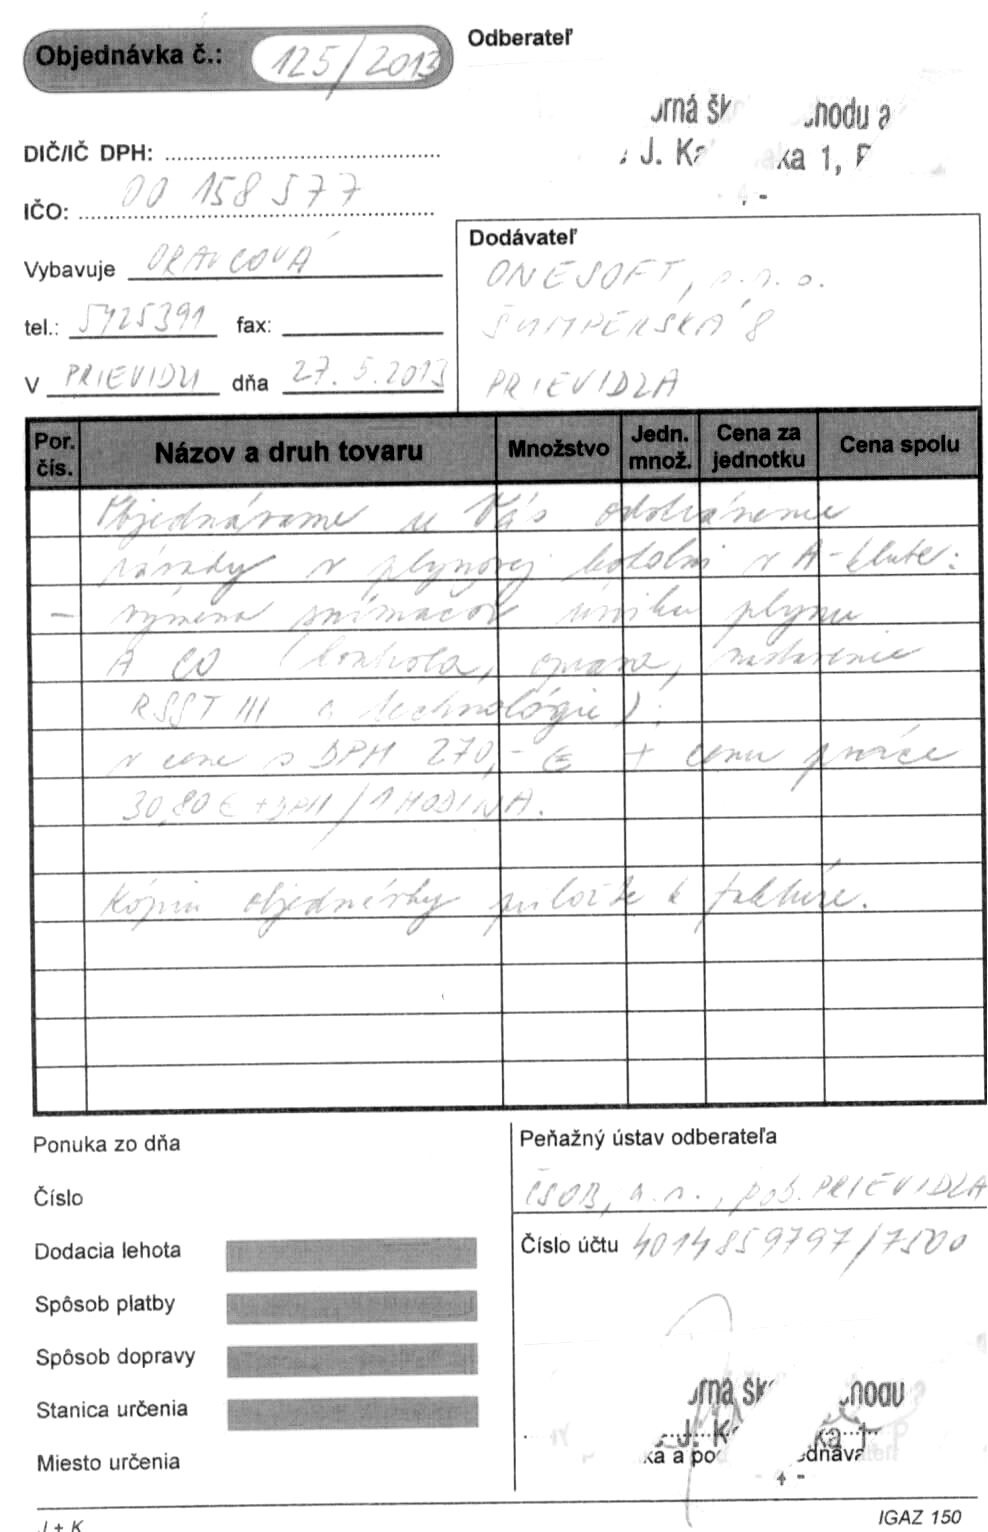 Objednávka č.: 125/2013
Odberateľ
DIČ/IČ DPH:
J.
1,
IČO: 00 158 577
Vybavuje ORAVCOVÁ
tel.: 5425391 fax:
V PRIEVIDZI dňa 27.5.2013
Dodávateľ
ONESOFT, s.r.o.
ŠUMPERSKÁ 8
PRIEVIDZA
Por. čís. Názov a druh tovaru Množstvo Jedn. množ. Cena za jednotku Cena spolu
Objednávame u Vás odstránenie
závady v plynovej kotolni v A-
- výmena snímačov úniku plynu
A CO (kontrola, oprava, nastavenie
RSST III a technológie):
v cene s DPH 270,- € + cenu práce
30,80 € + DPH / 1 HODINA.
Kópiu objednávky priložte k faktúre.
Ponuka zo dňa
Číslo
Dodacia lehota
Spôsob platby
Spôsob dopravy
Stanica určenia
Miesto určenia
Peňažný ústav odberateľa
ČSOB, a.s., pob. PRIEVIDZA
Číslo účtu 4014859797/7500
J.
J + K
IGAZ 150